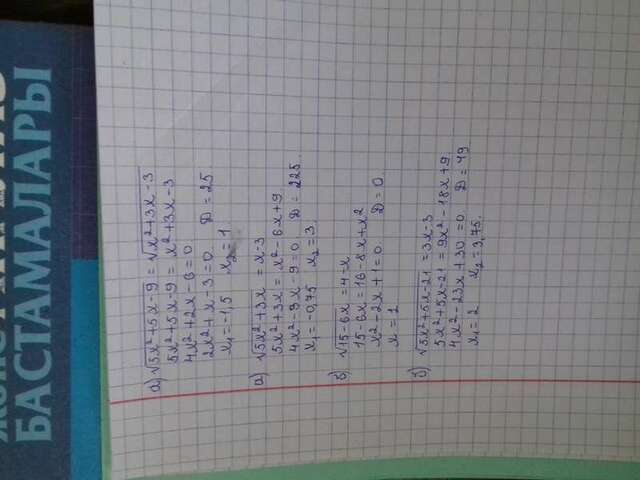 БАСТАМАЛАРЫ
а) √5x²+5x-9 = √x²+3x-3
5x²+5x-9 = x²+3x-3
4x²+2x-6=0
2x²+x-3=0 D=25
x₁=-1,5 x₂=1
а) √5x²+3x = x-3
5x²+3x = x²-6x+9
4x²-9x-9=0 D=225
x₁=-0,75 x₂=3
б) √15-6x=4-x
15-6x=16-8x+x²
x²-2x+1=0 D=0
x=1
б) √5x²+5x-21=3x-3
5x²+5x-21=9x²-18x+9
4x²-23x+30=0 D=49
x₁=2 x₂=3,75